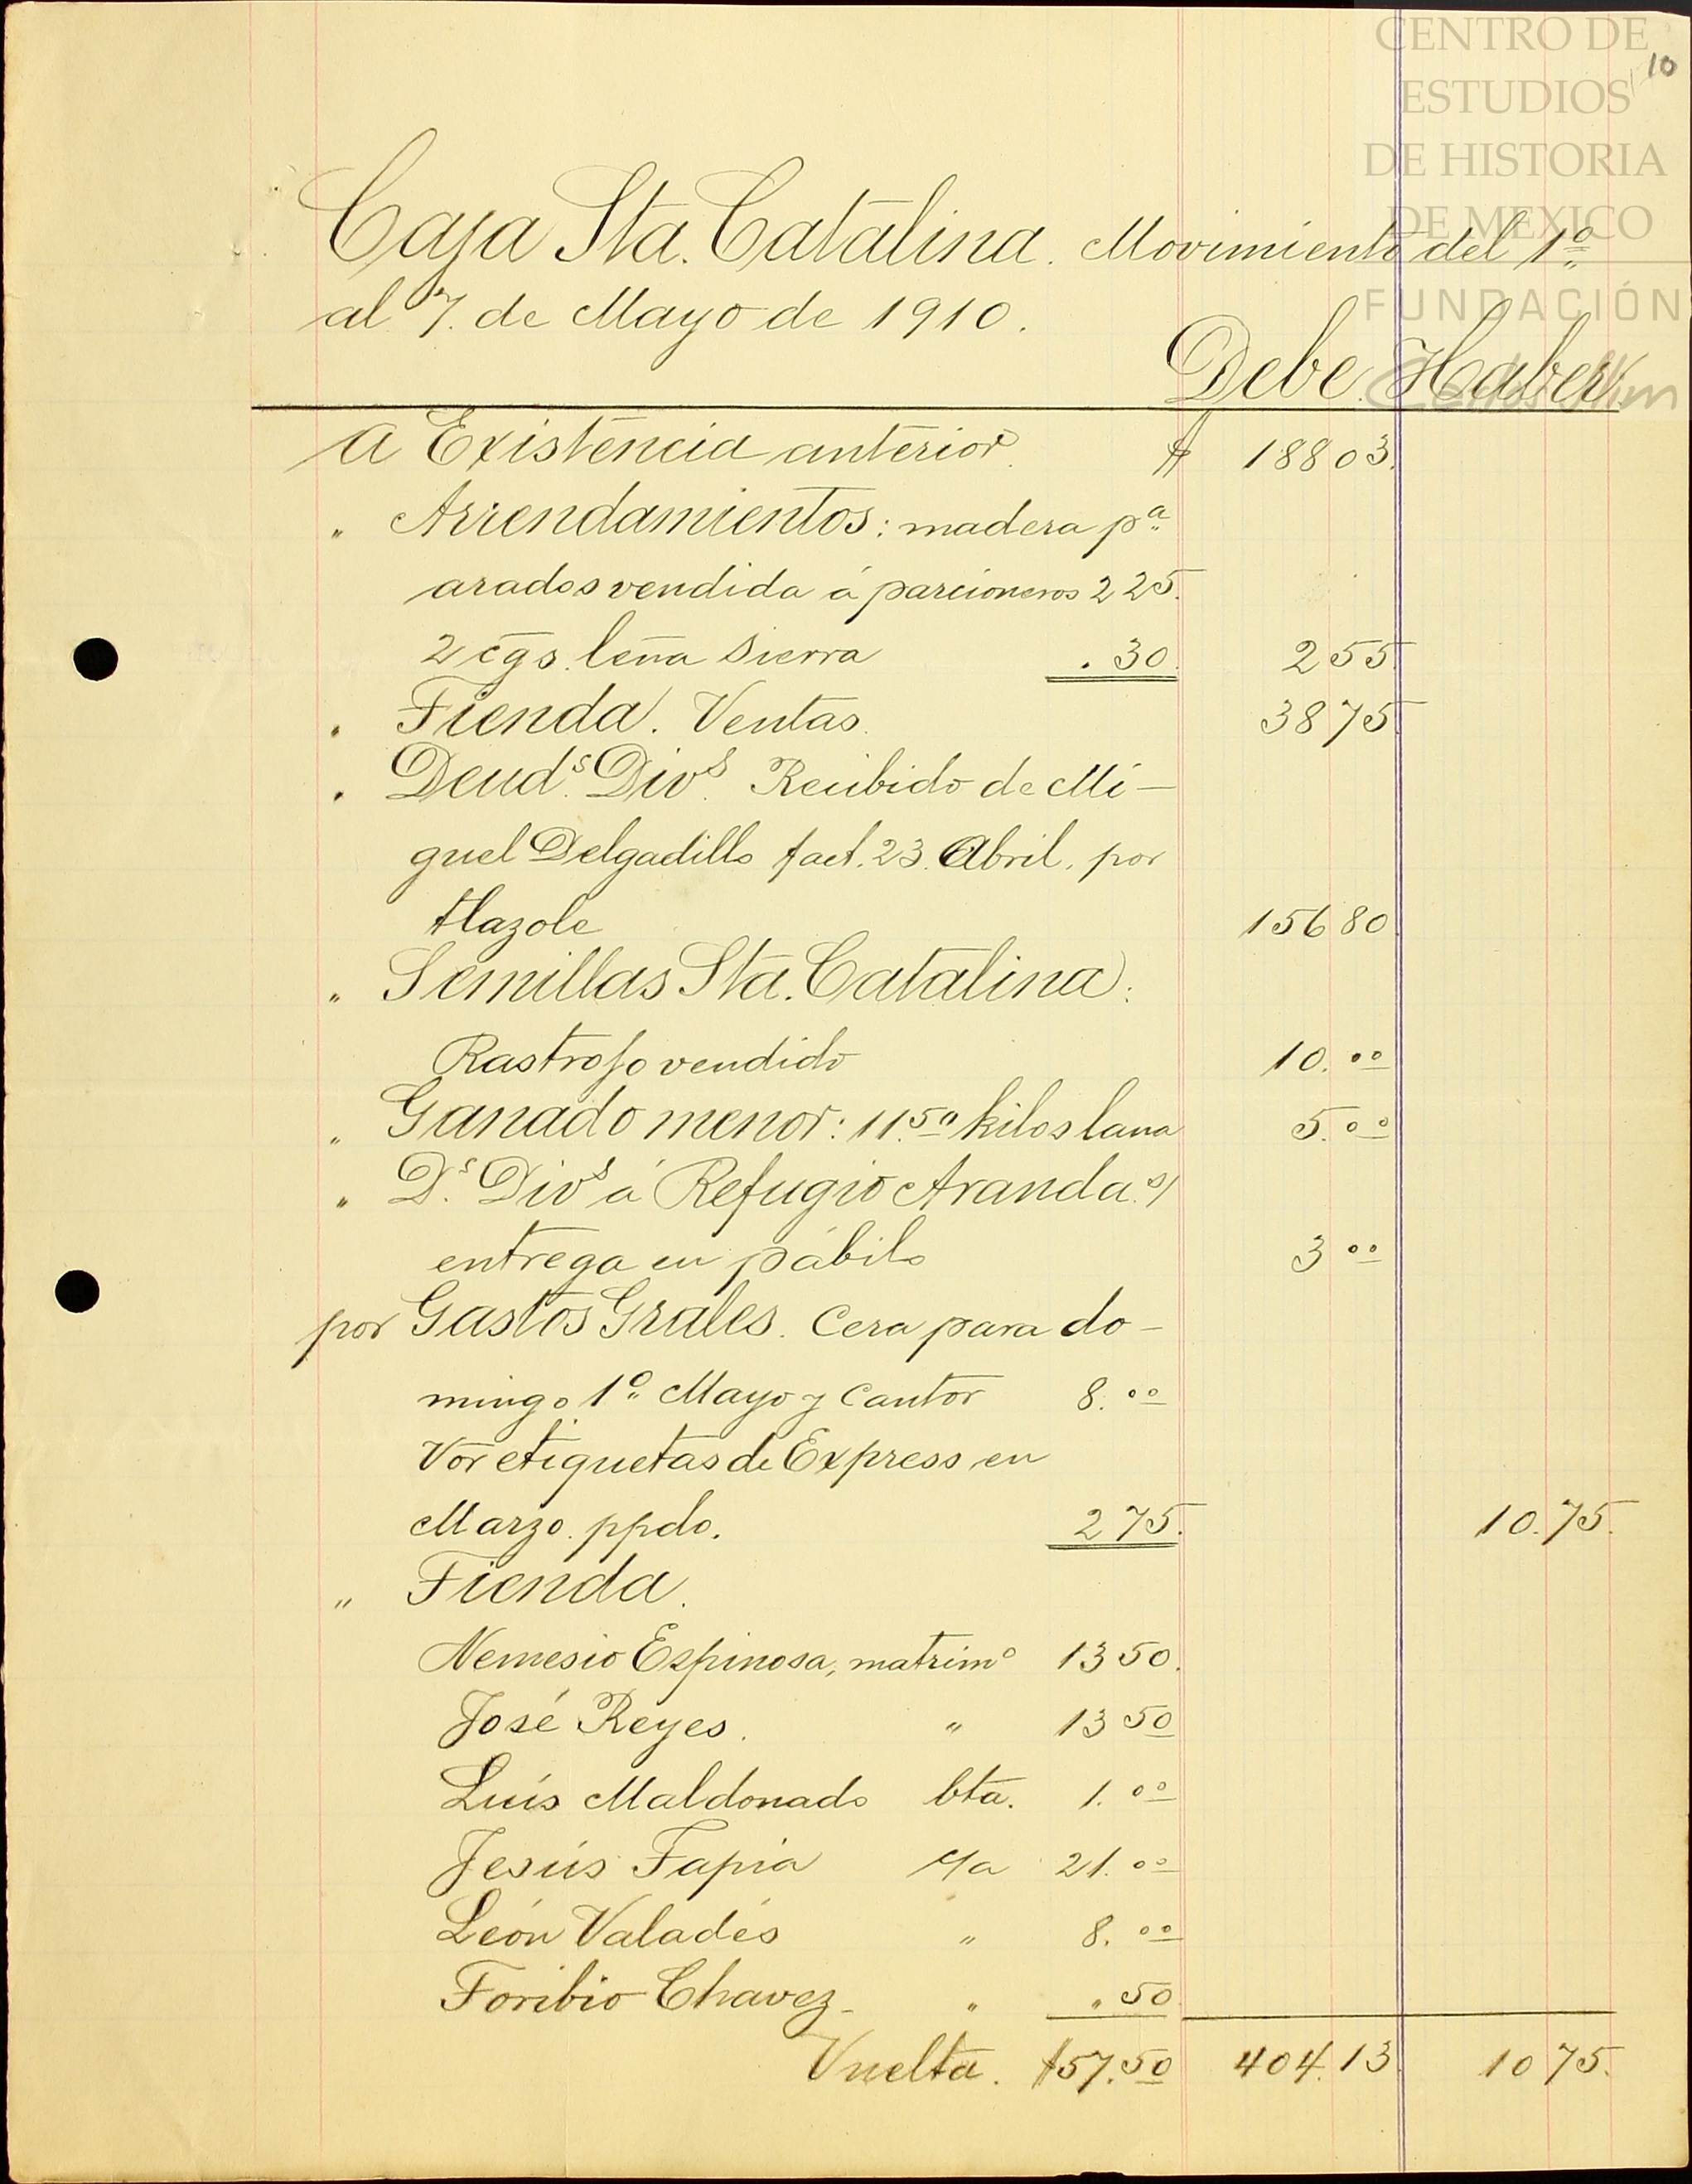 CENTRO DE
ESTUDIOS
DE HISTORIA
DE MEXICO
FUNDACIÓN
Carlos Slim
10
Caja Sta. Catalina. Movimiento del 1º
al 7. de Mayo de 1910.
Debe. Haber.
A Existencia anterior. $ 188 03.
" Arrendamientos: madera pª
arados vendida á parcioneros 2 25.
2 cgs. leña Sierra . 30. 2 55.
" Tienda. Ventas. 38 75.
" Deuds. Divs. Recibido de Mi-
guel Delgadillo fact. 23. Abril, por
tlazole 156 80.
" Semillas Sta. Catalina:
Rastrojo vendido 10. 00
" Ganado menor: 11.50 kilos lana 5. 00
" Ds. Divs á Refugio Aranda s/
entrega en pábilo 3 00
por Gastos Grales. Cera para do-
mingo 1º Mayo y Cantor 8. 00
Vor etiquetas de Express en
Marzo. ppdo. 2 75. 10. 75.
" Tienda.
Nemesio Espinosa, matrimº 13 50.
José Reyes. " 13 50
Luís Maldonado bta. 1. 00
Jesús Tapia 21. 00
León Valadés " 8. 00
Toribio Chavez- " . 50
Vuelta. $57.50 404. 13. 10 75.